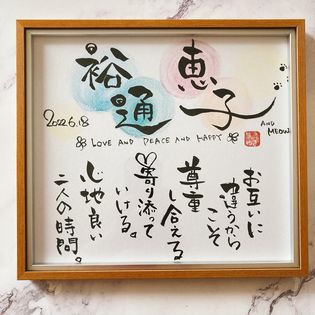 裕通
恵子
2022.6.18
LOVE AND PEACE AND HAPPY
AND
MEOW
お互いに
違うから
こそ
尊重
し合える
寄り添って
いける。
心地良い
二人の時間。